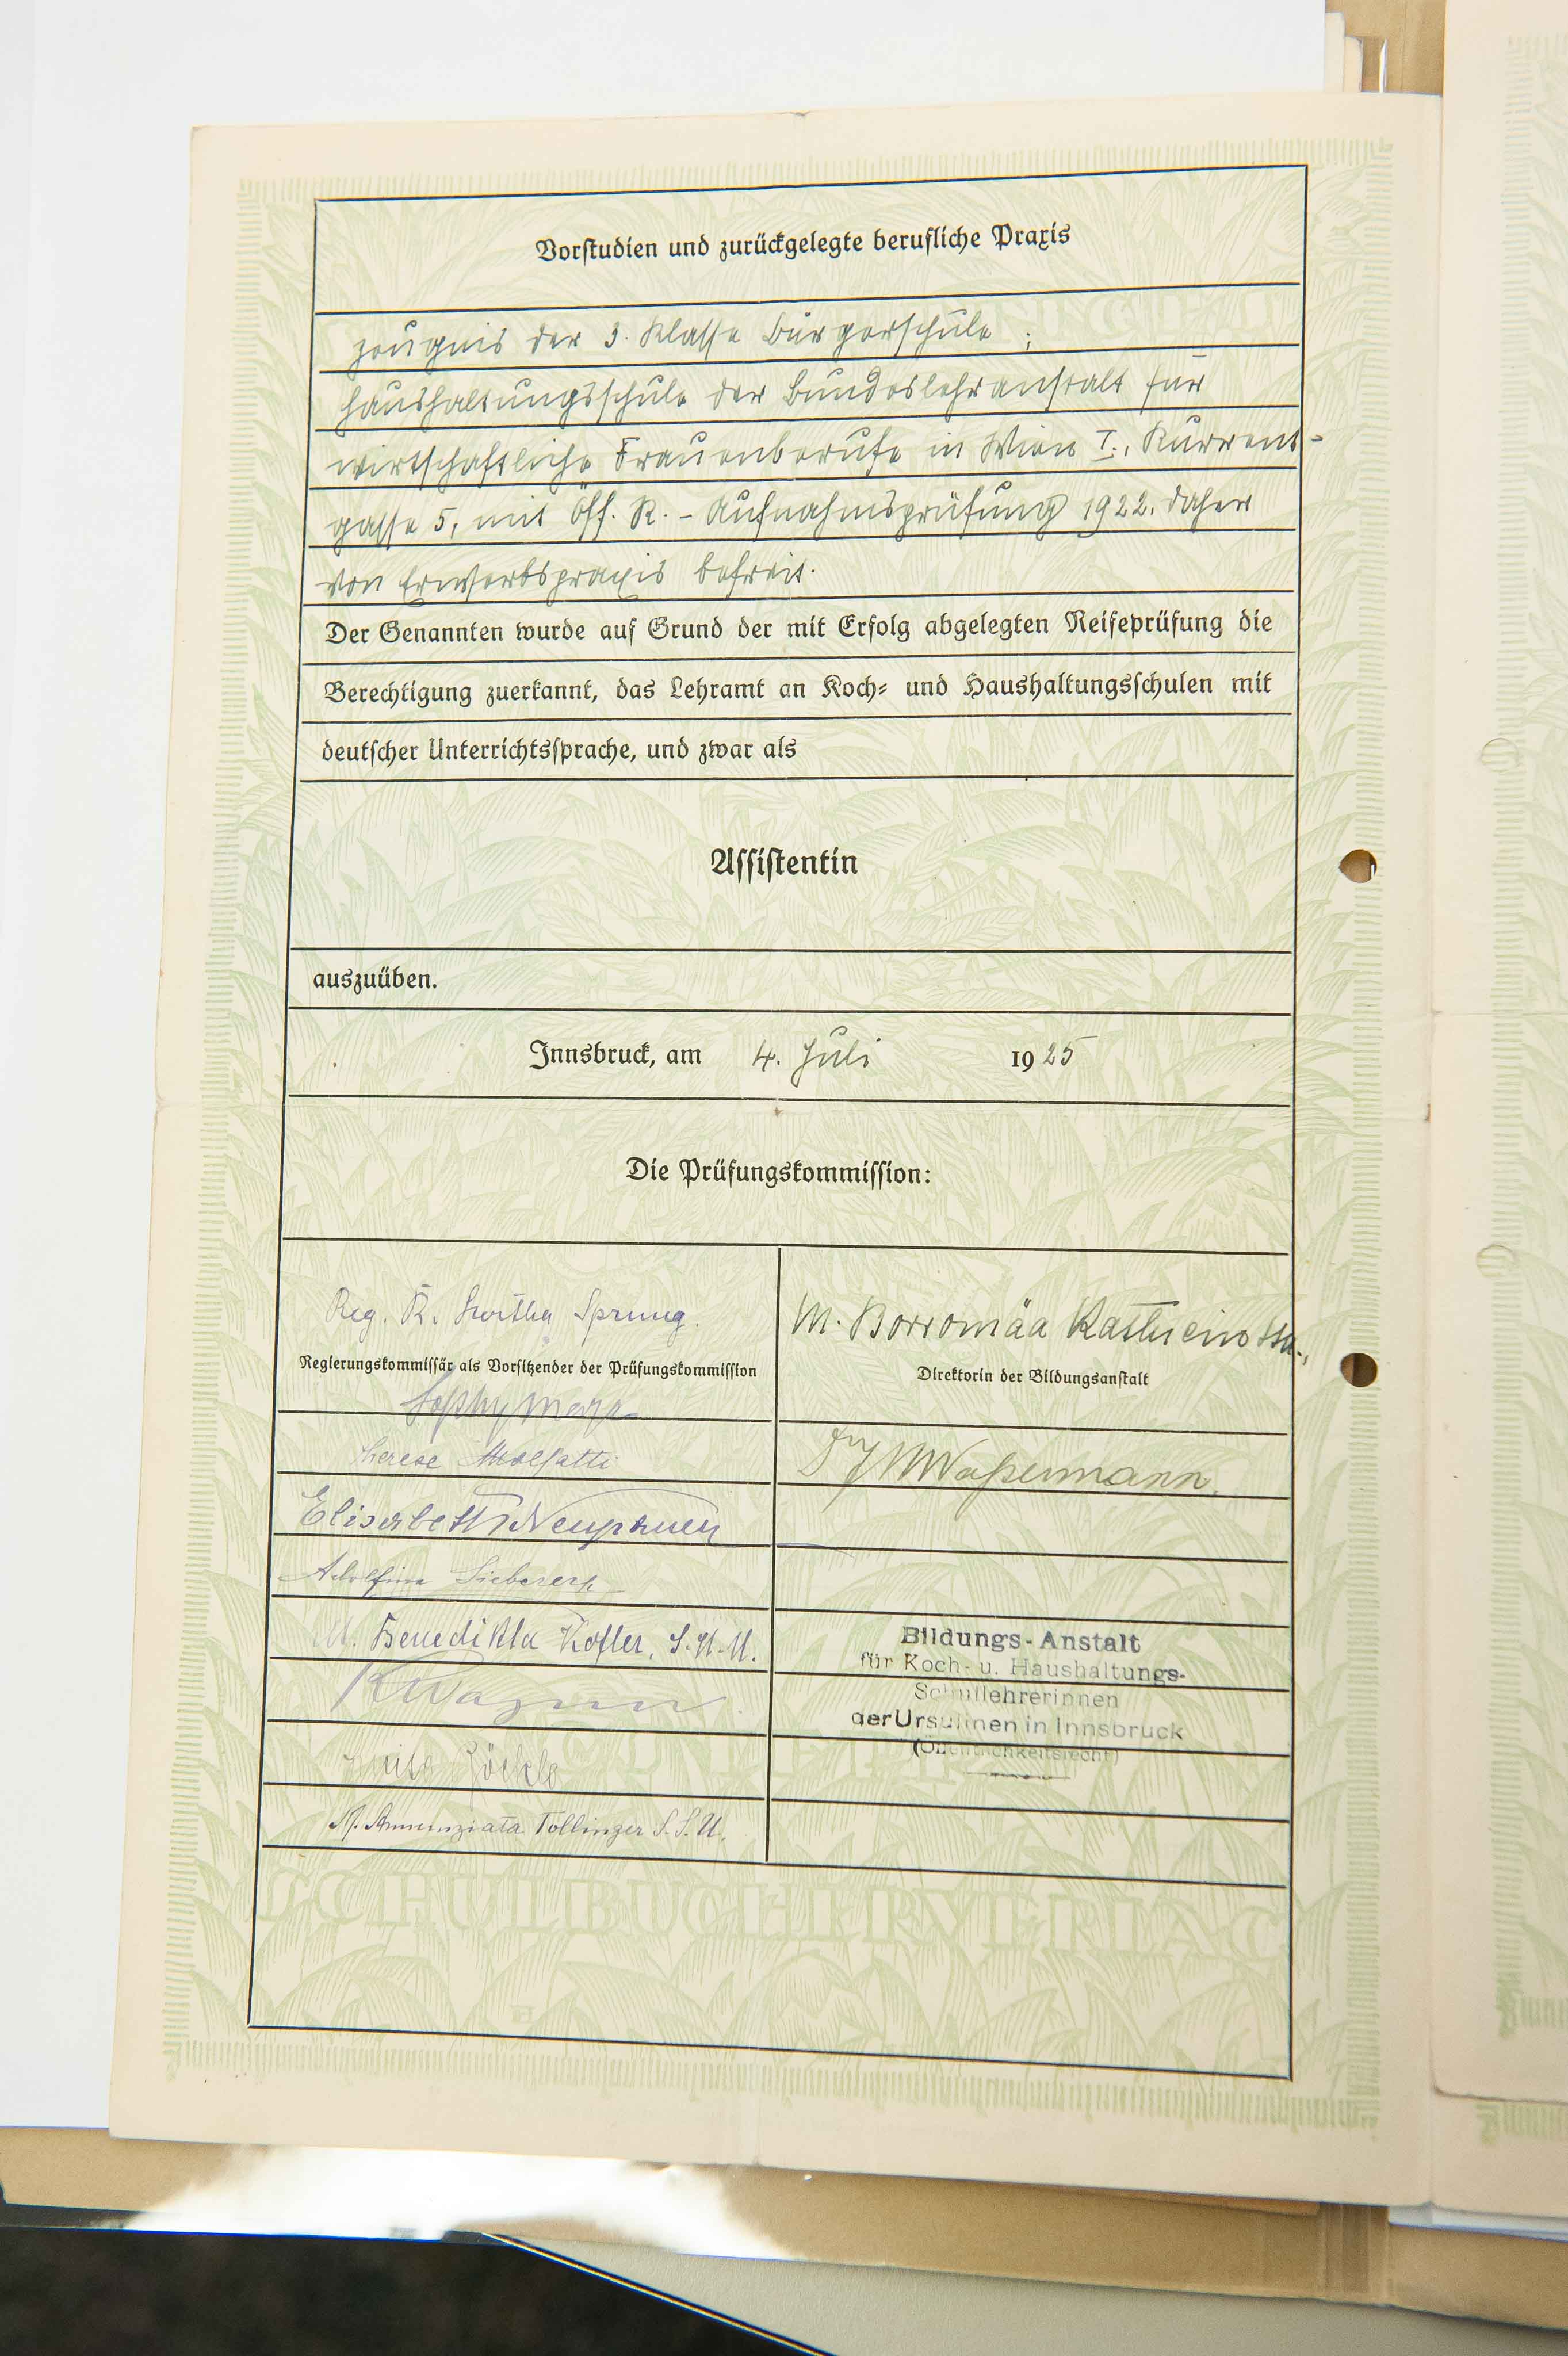 Vorstudien und zurückgelegte berufliche Praxis
Zeugnis der 3. Klasse Bürgerschule ;
Haushaltungsschule der Bundeslehranstalt für
wirtschaftliche Frauenberufe in Wien I., Kurrent-
gasse 5, mit Öff. R. - Aufnahmsprüfung 1922. Daher
von Erwerbspraxis befreit.
Der Genannten wurde auf Grund der mit Erfolg abgelegten Reifeprüfung die
Berechtigung zuerkannt, das Lehramt an Koch- und Haushaltungsschulen mit
deutscher Unterrichtssprache, und zwar als
Assistentin
auszuüben.
Innsbruck, am 4. Juli 1925
Die Prüfungskommission:
Reg. R. Hertha Sprung.
Regierungskommissär als Vorsitzender der Prüfungskommission
M. Borromäa Kathrein
Direktorin der Bildungsanstalt
Therese Malfatti
Wassermann
Elisabeth
Adolfine Sieberer
M. Benedikta Kofler, S. U.
Wagner
Luisa
M. Annunziata Tollinger S. S. U.
Bildungs-Anstalt
für Koch- u. Haushaltungs-
Schullehrerinnen
der Ursulinen in Innsbruck
(Öffentlichkeitsrecht)
SCHULBUCHERVERLAG